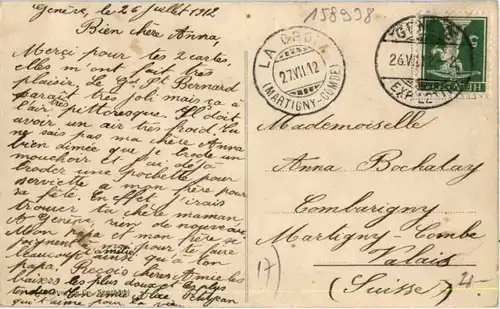 Genève, le 26 Juillet 1912
Bien chère Anna,
Merci pour tes 2 cartes.
Elles m'ont fait très
plaisir. Le Gd St Bernard
paraît très joli mais ça à
l'air très pittoresque. Il doit
avoir un air très froid. Tu
ne sais pas ma chère Anna
bien aimée que je brode un
mouchoir et j'ai déjà
broder une pochette pour
serviette a mon frère pour
sa fête. En effet j'irais
trouver ta chère maman
A Genève, rien de nouveau
Mon papa et mon frère se
joignent à moi pour te faire
beaucoup d'amitié ainsi qu'à ton
papa. Reçois chère Amie les
baisers les plus doux et les plus
tendres. Ton amie Alice Petitjean
qui t'aime pour la vie
158998
LA CROIX
27.VII.12
(MARTIGNY-COMBE)
26.VII
EXP. LET
HELVETIA
Mademoiselle
Anna Bochatay
Combarigny
Martigny Combe
Valais
(Suisse)
17)